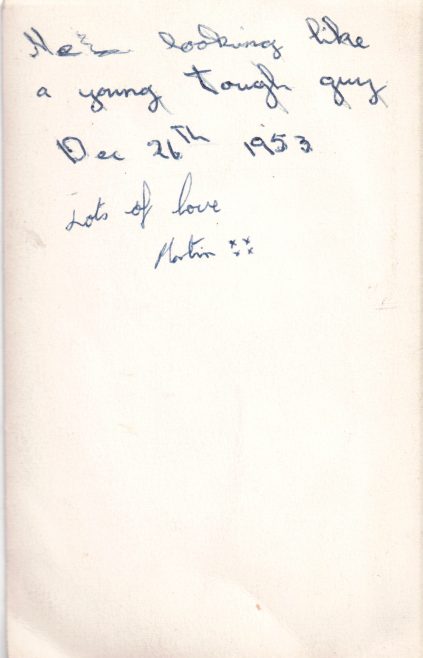 looking like
a young tough guy
Dec 26th 1953
Lots of love
Martin xxxx